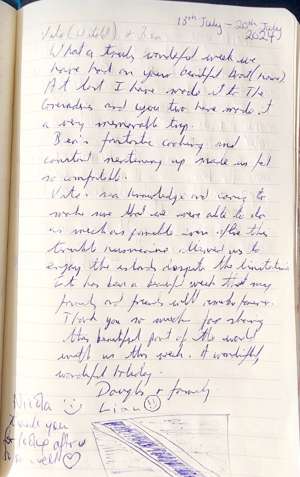 13th July - 20th July
2024
& Bea
What a truly wonderful week we
have had on your beautiful boat (home)
At last I have made it to the
Grenadines and you two have made it
a very memorable trip.
Bea's fantastic cooking and
constant made us feel
so comfortable.
sea knowledge and caring to
make sure that we were able to do
as much as possible even after the
hurricane allowed us to
enjoy the islands despite the limitations
It has been a week that my
family and friends will remember forever.
Thank you so much for sharing
this beautiful part of the world
with us this week. A wonderful,
wonderful holiday.
Douglas + family.
Liam
Nicola
Thank you
for looking after us
so well